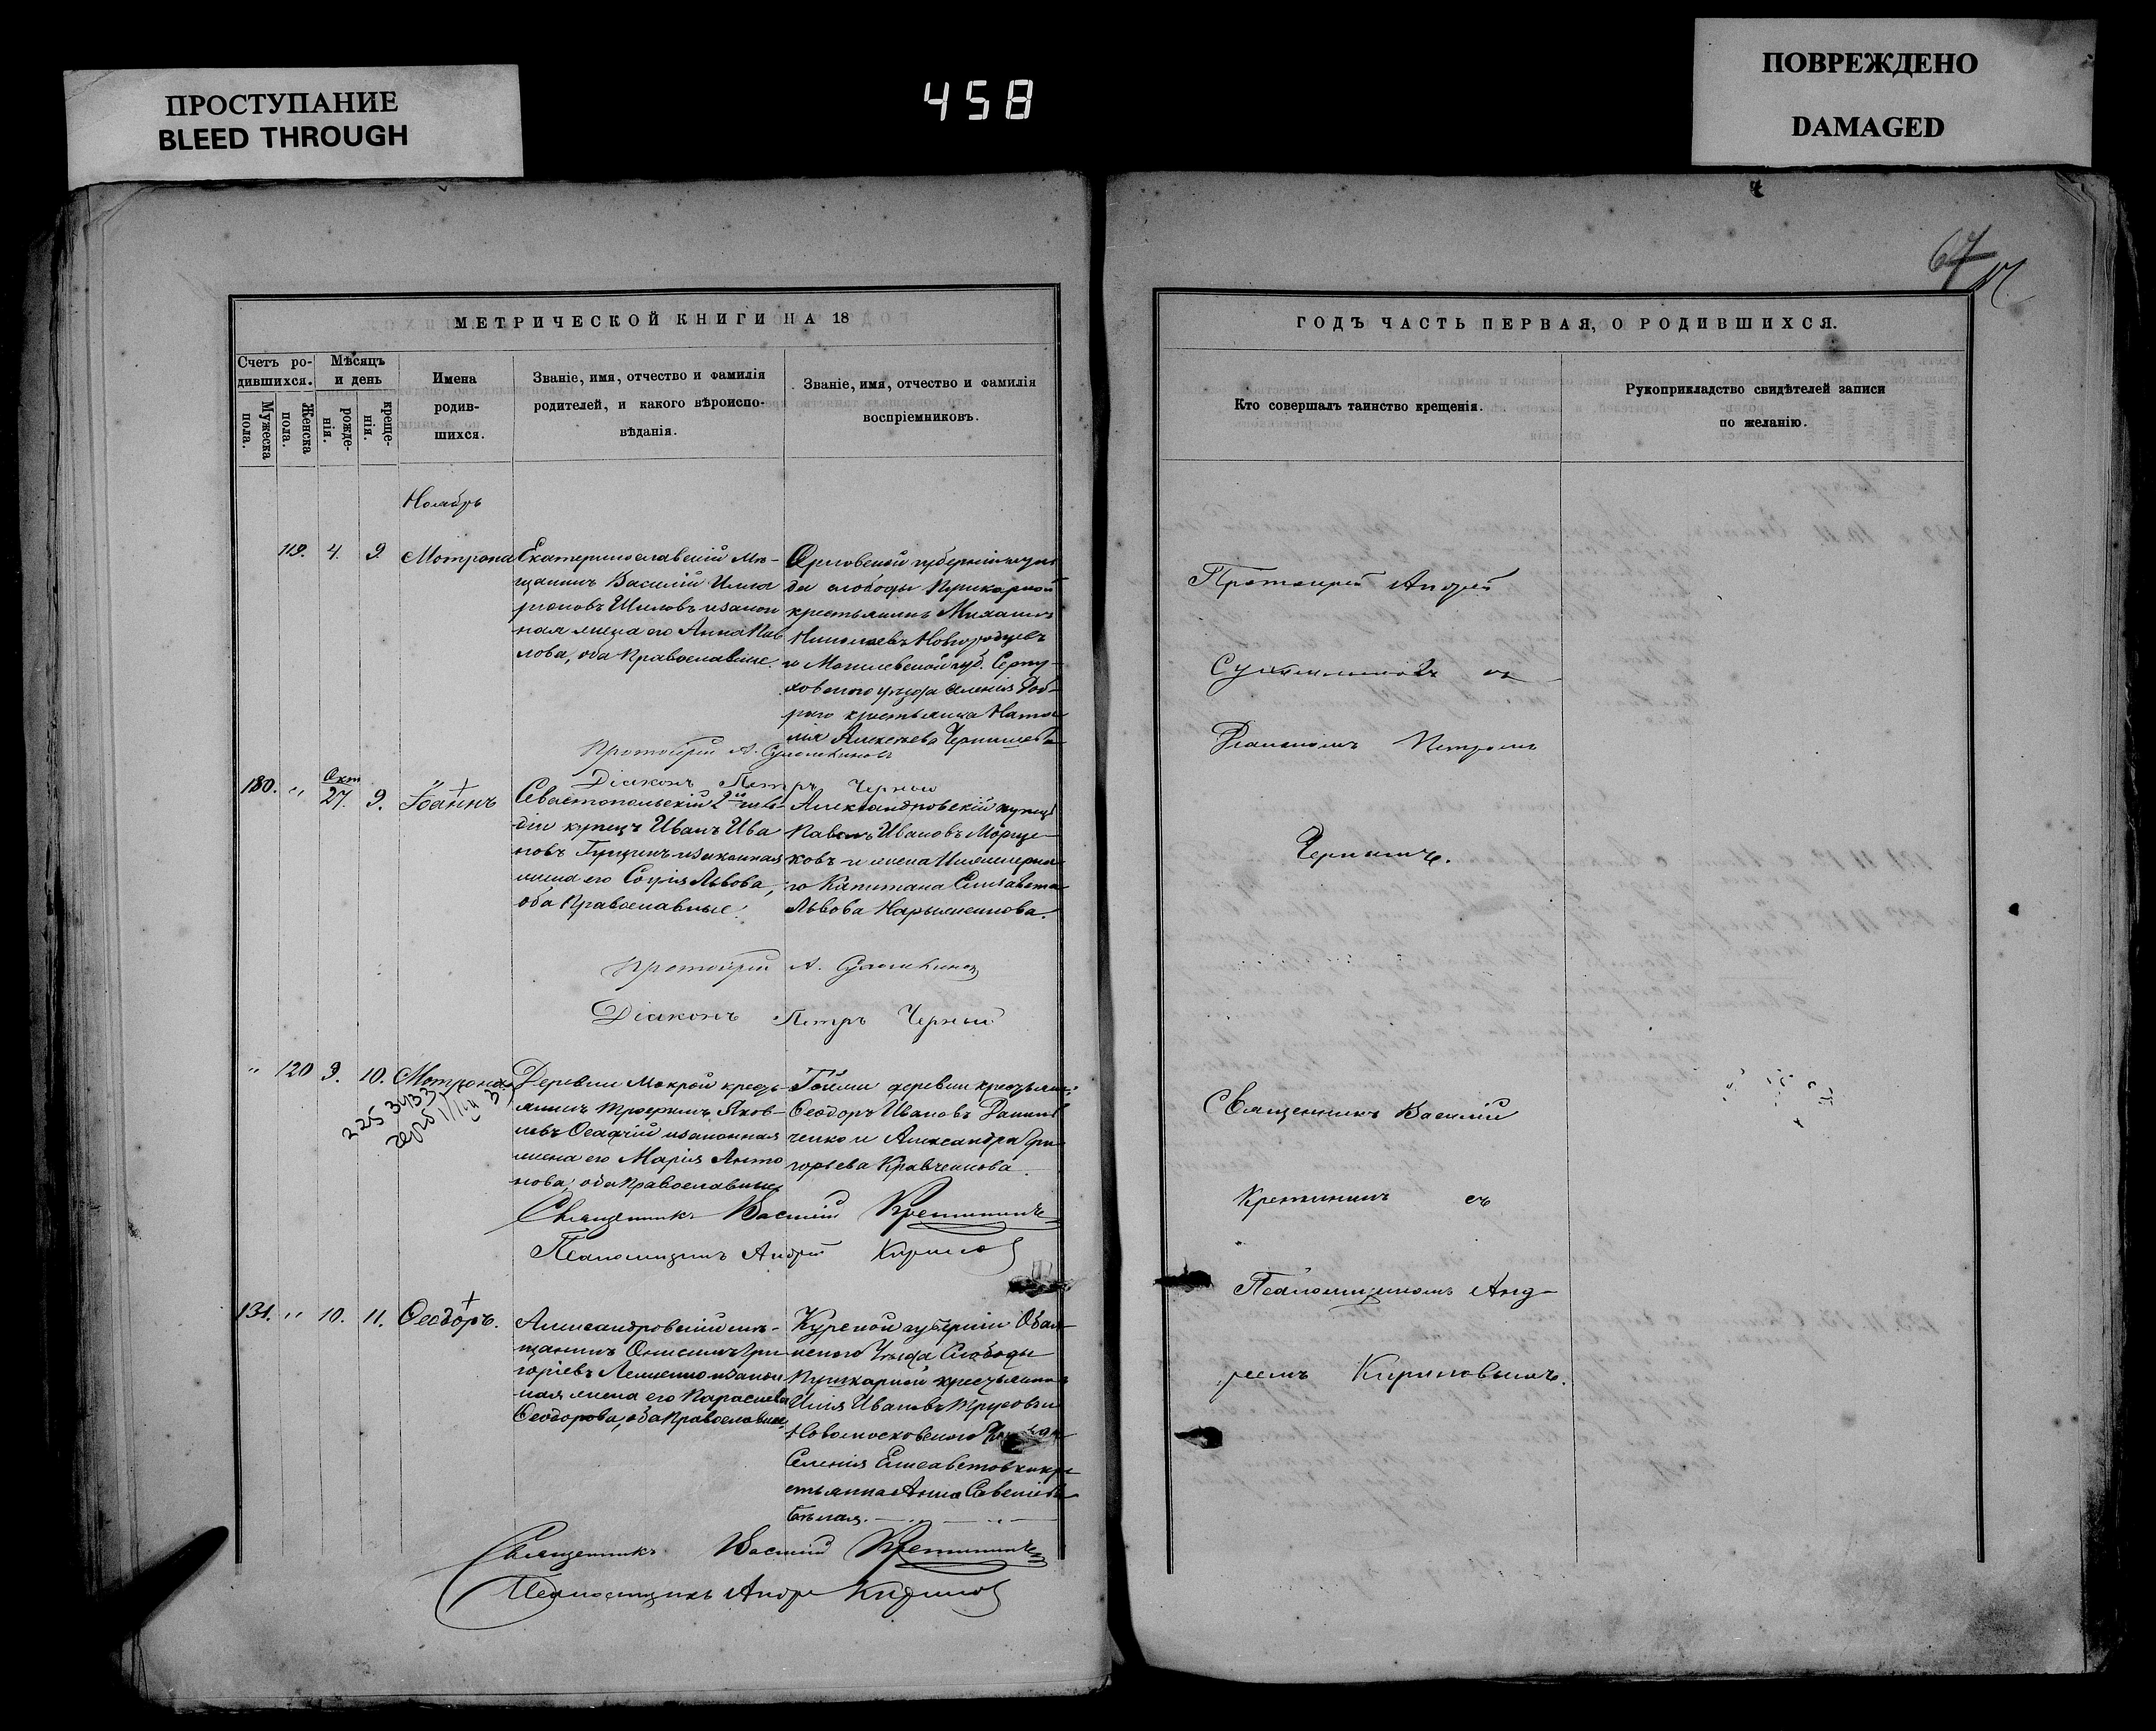 ПРОСТУПАНИЕ
BLEED THROUGH
458
ПОВРЕЖДЕНО
DAMAGED
МЕТРИЧЕСКОЙ КНИГИ НА 18
Счетъ ро-
дившихся.
Мужеска
пола.
Женска
пола.
Мѣсяцъ
и день
рожде-
нія.
креще-
нія.
Имена
родив-
шихся.
Званіе, имя, отчество и фамилія
родителей, и какого вѣроиспо-
вѣданія.
Званіе, имя, отчество и фамилія
воспріемниковъ.
Ноябрь
119. 4. 9. Мотрона
Екатеринославскій мѣ-
щанинъ Василій
Шиловъ и закон
ная жена его Анна Пав
лова, оба Православные.
Орловской губерніи
слободы Пушкарной
крестьянинъ Михаилъ
Николаевъ Новгородцевъ
и Могилевской губ.
уѣзда селенія Доб-
раго крестьянка Ната
лія Алексѣева
Протоіерей А.
Діаконъ Петръ Черный
130. " Окт 27. 9. Іоаннъ
Севастопольскій 2й гиль-
діи купецъ Иванъ Ива
новъ и законная
жена его Софія Львова,
оба Православные.
Александровскій купецъ
Павелъ Ивановъ
ковъ и жена Инженерна
го Капитана Елисавета
Львова
Протоіерей А.
Діаконъ Петръ Черный
" 120 9. 10. Мотрона
225 3433
Деревни Мокрой кресть-
янинъ Трофимъ Яков-
левъ и законная
жена его Марія Анто
нова, оба Православные
Тойже деревни крестьянинъ
Ѳеодоръ Ивановъ Данил
ченко и Александра Гри
горьева Кравченкова.
Священникъ Василій
Псаломщикъ Андрей Кириловъ
131. " 10. 11. Ѳеодоръ.
Александровскій мѣ-
щанинъ Онисимъ Гри
горіевъ и закон
ная жена его Параскева
Ѳеодорова, оба Православные.
Курской губерніи Обоян
скаго Уѣзда Слободы
Пушкарной крестьянинъ
Илія Ивановъ Трусовъ и
Новомосковскаго Уѣзда
Селенія Елисаветовки кре
стьянка Анна
Бѣлая.
Священникъ Василій
Псаломщикъ Андрей Кириловъ
67
ГОДЪ ЧАСТЬ ПЕРВАЯ, О РОДИВШИХСЯ.
Кто совершалъ таинство крещенія.
Рукоприкладство свидѣтелей записи
по желанію.
Протоіерей Андрей
съ
Діакономъ Петромъ
Чернымъ.
Священникъ Василій
съ
Псаломщикомъ Анд-
реемъ Кириловымъ.